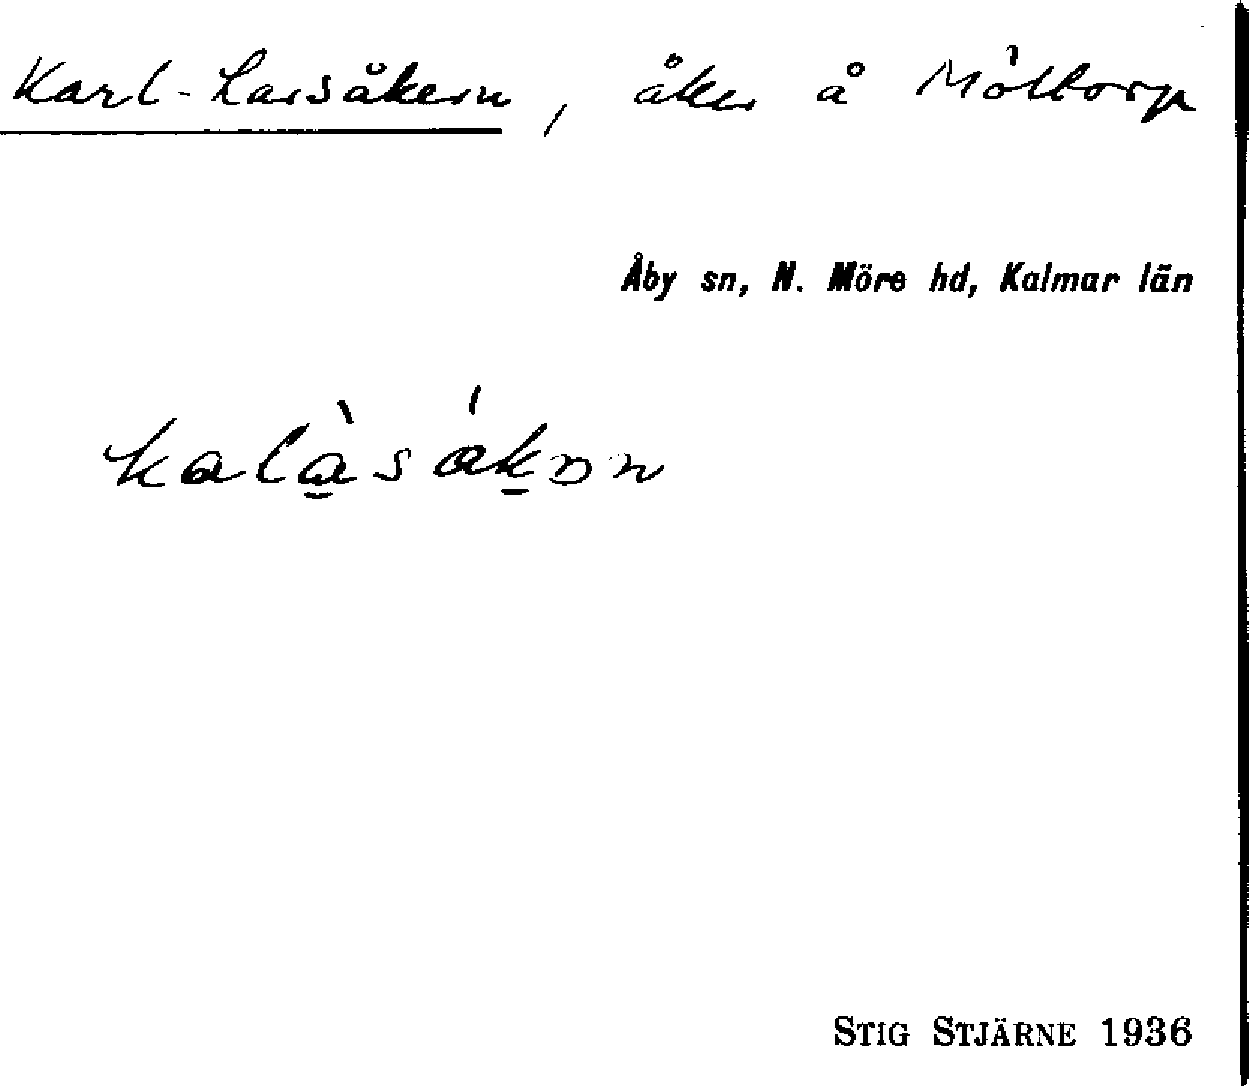 Karl-Larsåkern, åker å Möllorp
Åby sn, N. Möre hd, Kalmar län
STIG STJÄRNE 1936